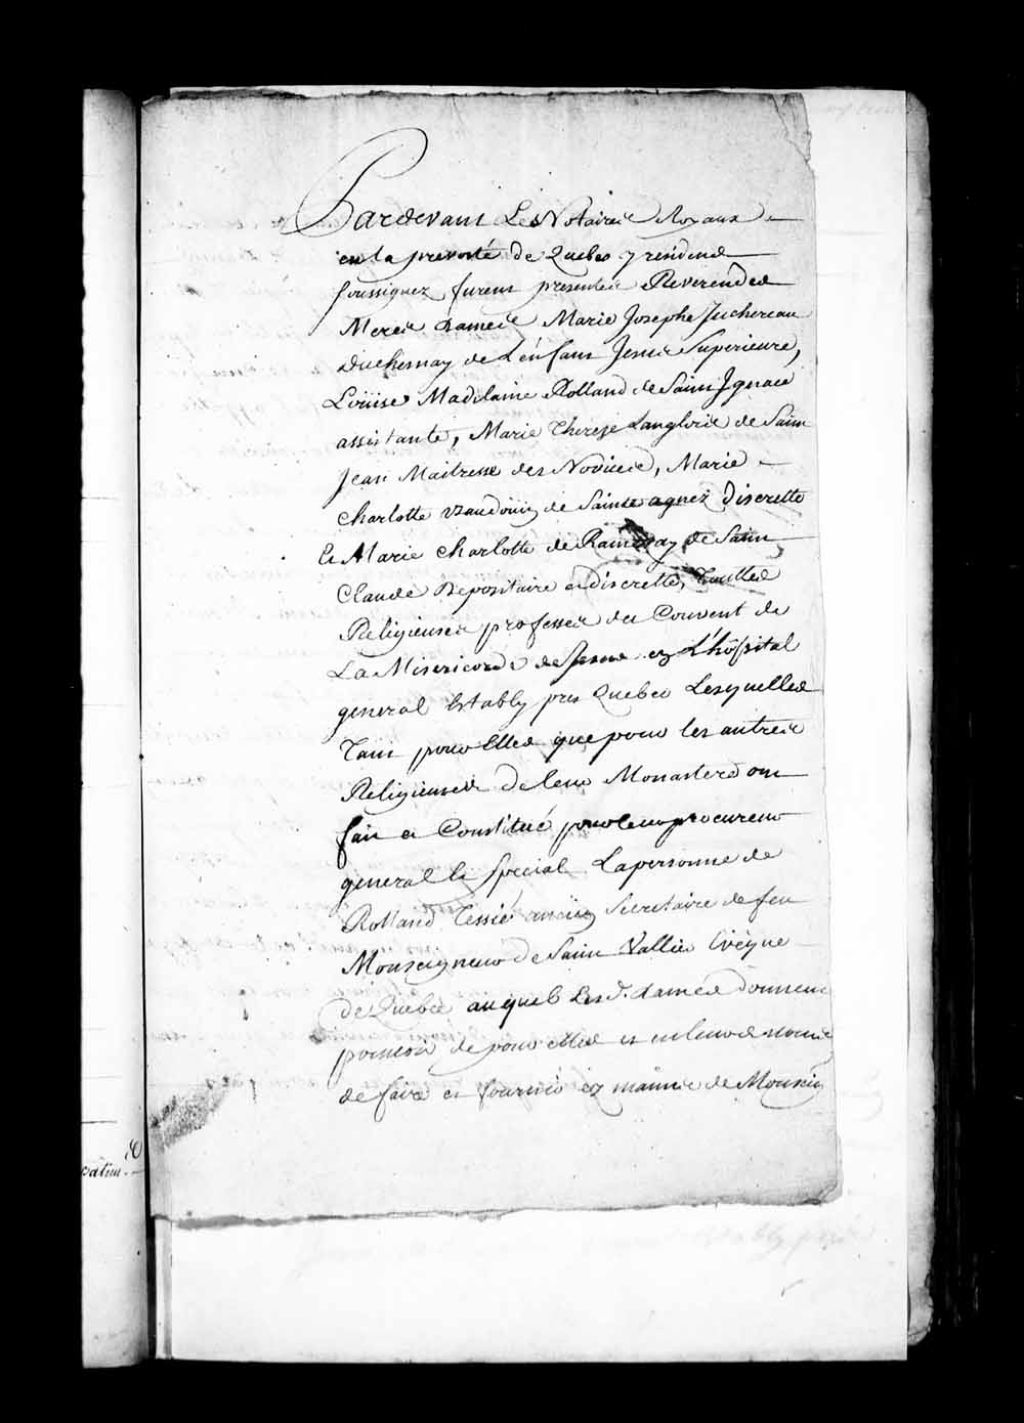 Pardevant Les Notaires Royaux
en la prevosté de Quebec y residens
soussignez furent presentes Reverendes
Meres dames Marie Josephe Juchereau
Duchesnay de L'enfant Jesus Superieure,
Loüise Madelaine Rolland de Saint Ignace
assistante, Marie Therese Langlois de Saint
Jean Maitresse des Novices, Marie
Charlotte de Sainte agnez Discrette
Et Marie Charlotte de Ramezay de Saint
Claude Depositaire et discrette, Touttes
Religieuses professes du Couvent de
La Misericorde de Jesus ez L'hôpital
general Estably pres Quebec Lesquelles
Tant pour Elles que pour les autres
Religieuses de leur Monastere ont
fait et Constitué pour leur procureur
general Et special La personne de
Rolland Tessié ancien Secretaire de feu
Monseigneur de Saint Vallier Evêque
de Quebec auquel Les d. dames donnent
pouvoir de pour Elles et en leurs noms
de faire et fournir ez mains de Monseig